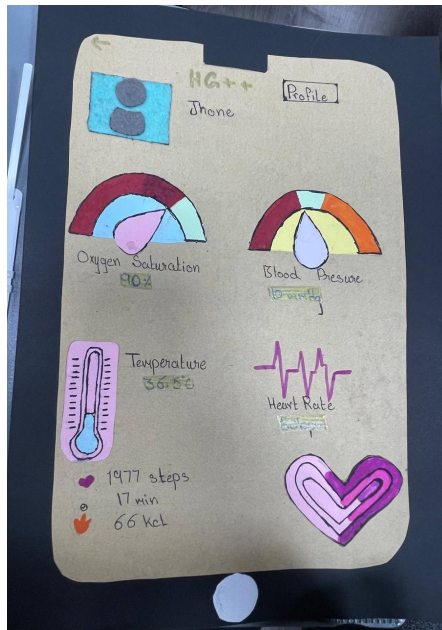 HG++
Profile
Jhone
Oxygen Saturation
90%
Blood Presure
mmHg
Temperature
36.5°C
Heart Rate
1977 steps
17 min
66 kcl